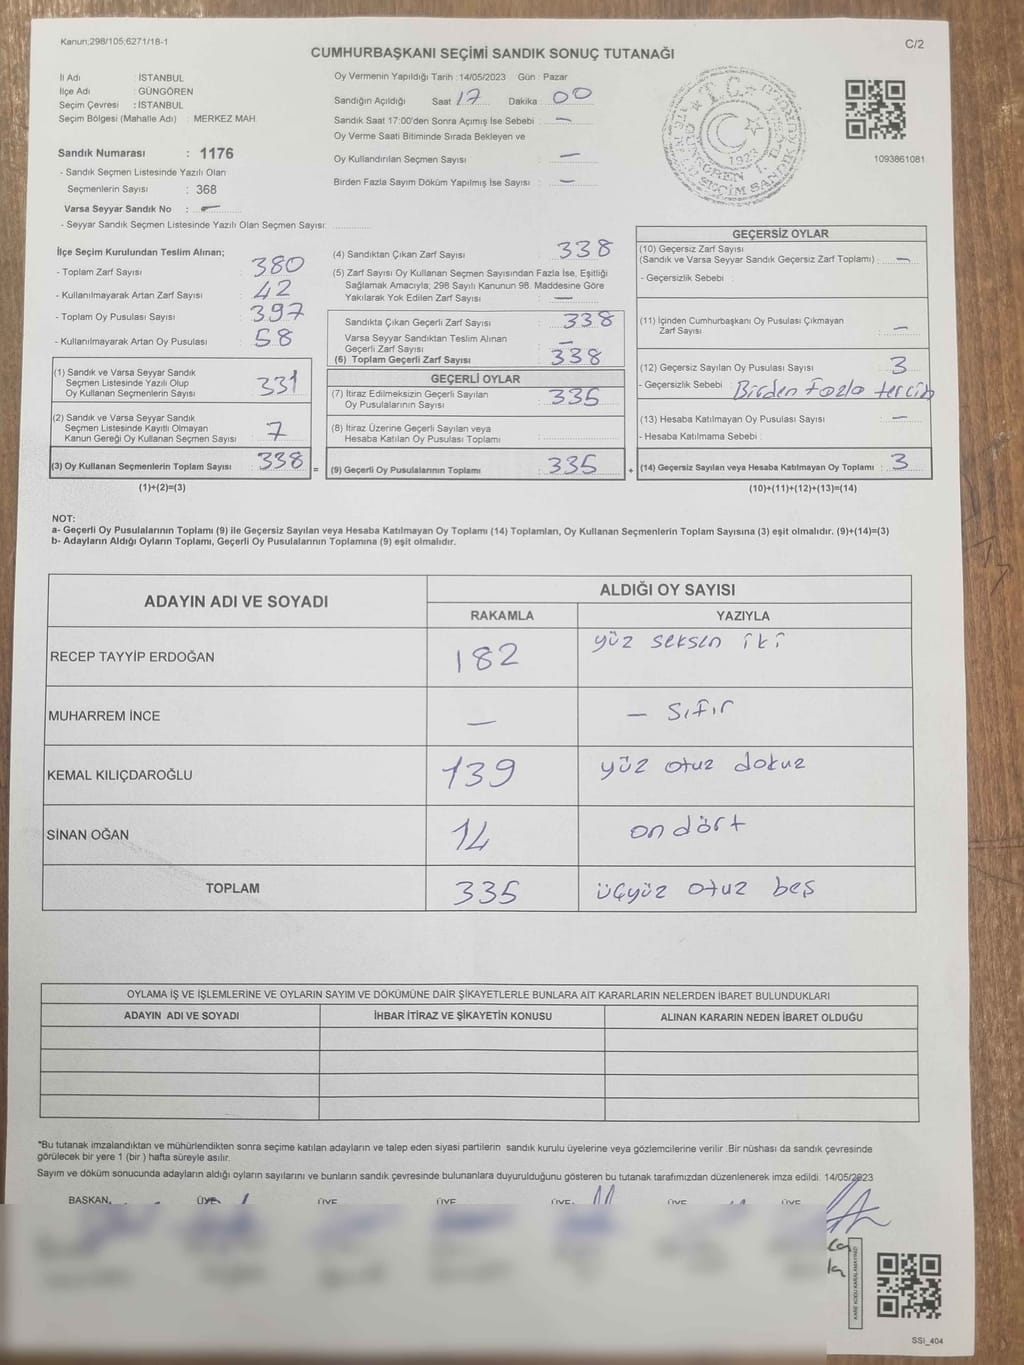 Kanun;298/105;6271/18-1
C/2
CUMHURBAŞKANI SEÇİMİ SANDIK SONUÇ TUTANAĞI
İl Adı : İSTANBUL
İlçe Adı : GÜNGÖREN
Seçim Çevresi : İSTANBUL
Seçim Bölgesi (Mahalle Adı) : MERKEZ MAH.
Sandık Numarası : 1176
- Sandık Seçmen Listesinde Yazılı Olan
Seçmenlerin Sayısı : 368
Varsa Seyyar Sandık No : –
- Seyyar Sandık Seçmen Listesinde Yazılı Olan Seçmen Sayısı:
Oy Vermenin Yapıldığı Tarih : 14/05/2023 Gün : Pazar
Sandığın Açıldığı Saat 17 Dakika : 00
Sandık Saat 17:00'den Sonra Açımış İse Sebebi : –
Oy Verme Saati Bitiminde Sırada Bekleyen ve
Oy Kullandırılan Seçmen Sayısı : –
Birden Fazla Sayım Döküm Yapılmış İse Sayısı : –
1093861081
İlçe Seçim Kurulundan Teslim Alınan;
- Toplam Zarf Sayısı : 380
- Kullanılmayarak Artan Zarf Sayısı : 42
- Toplam Oy Pusulası Sayısı : 397
- Kullanılmayarak Artan Oy Pusulası : 58
(1) Sandık ve Varsa Seyyar Sandık
Seçmen Listesinde Yazılı Olup
Oy Kullanan Seçmenlerin Sayısı : 331
(2) Sandık ve Varsa Seyyar Sandık
Seçmen Listesinde Kayıtlı Olmayan
Kanun Gereği Oy Kullanan Seçmen Sayısı : 7
(3) Oy Kullanan Seçmenlerin Toplam Sayısı : 338
(1)+(2)=(3)
(4) Sandıktan Çıkan Zarf Sayısı : 338
(5) Zarf Sayısı Oy Kullanan Seçmen Sayısından Fazla İse, Eşitliği
Sağlamak Amacıyla; 298 Sayılı Kanunun 98. Maddesine Göre
Yakılarak Yok Edilen Zarf Sayısı : –
Sandıkta Çıkan Geçerli Zarf Sayısı : 338
Varsa Seyyar Sandıktan Teslim Alınan
Geçerli Zarf Sayısı : –
(6) Toplam Geçerli Zarf Sayısı : 338
GEÇERLİ OYLAR
(7) İtiraz Edilmeksizin Geçerli Sayılan
Oy Pusulalarının Sayısı : 335
(8) İtiraz Üzerine Geçerli Sayılan veya
Hesaba Katılan Oy Pusulası Toplamı :
= (9) Geçerli Oy Pusulalarının Toplamı : 335
GEÇERSİZ OYLAR
(10) Geçersiz Zarf Sayısı
(Sandık ve Varsa Seyyar Sandık Geçersiz Zarf Toplamı) : –
- Geçersizlik Sebebi :
(11) İçinden Cumhurbaşkanı Oy Pusulası Çıkmayan
Zarf Sayısı : –
(12) Geçersiz Sayılan Oy Pusulası Sayısı : 3
- Geçersizlik Sebebi : Birden Fazla tercih
(13) Hesaba Katılmayan Oy Pusulası Sayısı : –
- Hesaba Katılmama Sebebi :
+ (14) Geçersiz Sayılan veya Hesaba Katılmayan Oy Toplamı : 3
(10)+(11)+(12)+(13)=(14)
NOT:
a- Geçerli Oy Pusulalarının Toplamı (9) ile Geçersiz Sayılan veya Hesaba Katılmayan Oy Toplamı (14) Toplamları, Oy Kullanan Seçmenlerin Toplam Sayısına (3) eşit olmalıdır. (9)+(14)=(3)
b- Adayların Aldığı Oyların Toplamı, Geçerli Oy Pusulalarının Toplamına (9) eşit olmalıdır.
ADAYIN ADI VE SOYADI
ALDIĞI OY SAYISI
RAKAMLA YAZIYLA
RECEP TAYYİP ERDOĞAN 182 yüz seksen iki
MUHARREM İNCE – – sıfır
KEMAL KILIÇDAROĞLU 139 yüz otuz dokuz
SİNAN OĞAN 14 on dört
TOPLAM 335 üçyüz otuz beş
OYLAMA İŞ VE İŞLEMLERİNE VE OYLARIN SAYIM VE DÖKÜMÜNE DAİR ŞİKAYETLERLE BUNLARA AİT KARARLARIN NELERDEN İBARET BULUNDUKLARI
ADAYIN ADI VE SOYADI İHBAR İTİRAZ VE ŞİKAYETİN KONUSU ALINAN KARARIN NEDEN İBARET OLDUĞU
*Bu tutanak imzalandıktan ve mühürlendikten sonra seçime katılan adayların ve talep eden siyasi partilerin sandık kurulu üyelerine veya gözlemcilerine verilir. Bir nüshası da sandık çevresinde
görülecek bir yere 1 (bir ) hafta süreyle asılır.
Sayım ve döküm sonucunda adayların aldığı oyların sayılarını ve bunların sandık çevresinde bulunanlara duyurulduğunu gösteren bu tutanak tarafımızdan düzenlenerek imza edildi. 14/05/2023
BAŞKAN ÜYE ÜYE ÜYE ÜYE ÜYE ÜYE
SSİ_404